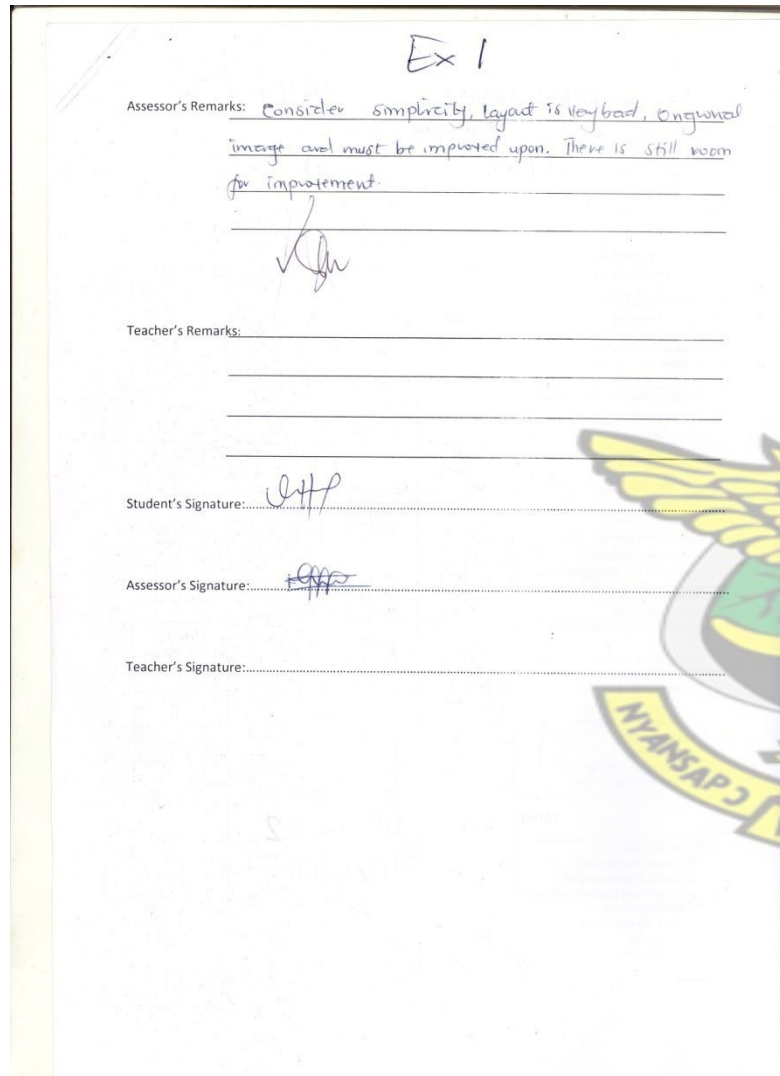 Ex 1
Assessor's Remarks: Consider simplicity, layout is very bad,
image and must be improved upon. There is still room
for improvement.
Teacher's Remarks:
Student's Signature:
Assessor's Signature:
Teacher's Signature:
NYANSAPƆ